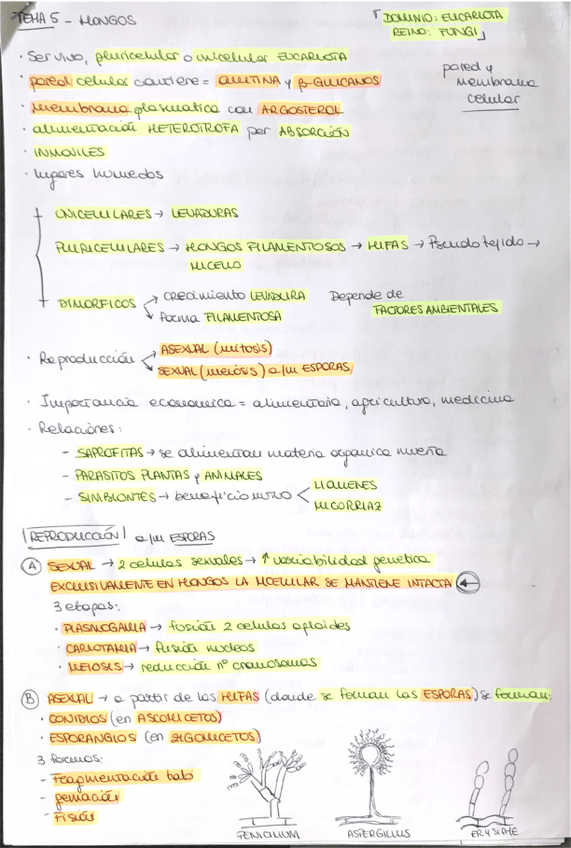 TEMA 5 - HONGOS
「DOMINIO: EUCARIOTA
REINO: FUNGI」
· Ser vivo, pluricelular o unicelular EUCARIOTA
· pared celular contiene = QUITINA y β-GLUCANOS
pared y
membrana
celular
· Membrana plasmatica con ARGOSTEROL
· alimentación HETEROTROFA por ABSORCIÓN
· INMOVILES
· lugares humedos
UNICELULARES → LEVADURAS
PLURICELULARES → HONGOS FILAMENTOSOS → HIFAS → Pseudotejido →
MICELIO
DIMORFICOS
crecimiento LEVADURA
Forma FILAMENTOSA
Depende de
FACTORES AMBIENTALES
· Reproducción
ASEXUAL (mitosis)
SEXUAL (meiosis) a/m ESPORAS
· Importancia economica = alimentaria, agricultura, medicina
· Relaciones:
- SAPROFITAS → se alimentan materia organica muerta
- PARASITOS PLANTAS y ANIMALES
- SIMBIONTES → beneficio mutuo
LIQUENES
MICORRIAZ
REPRODUCCIÓN a/m ESPORAS
A SEXUAL → 2 celulas sexuales → ↑ variabilidad genetica
EXCLUSIVAMENTE EN HONGOS LA MCELULAR SE MANTIENE INTACTA ←
3 etapas:
· PLASMOGAMIA → fusión 2 celulas aploides
· CARIOTAMIA → fusión nucleos
· MEIOSIS → reducción nº cromosomas
B ASEXUAL → a partir de las HIFAS (donde se forman las ESPORAS) se forman:
· CONIDIOS (en ASCOMICETOS)
· ESPORANGIOS (en ZIGOMICETOS)
3 formas:
- Fragmentación talo
- gemación
- Fisión
PENICILIUM
ASPERGILLUS
ERYSIPHE